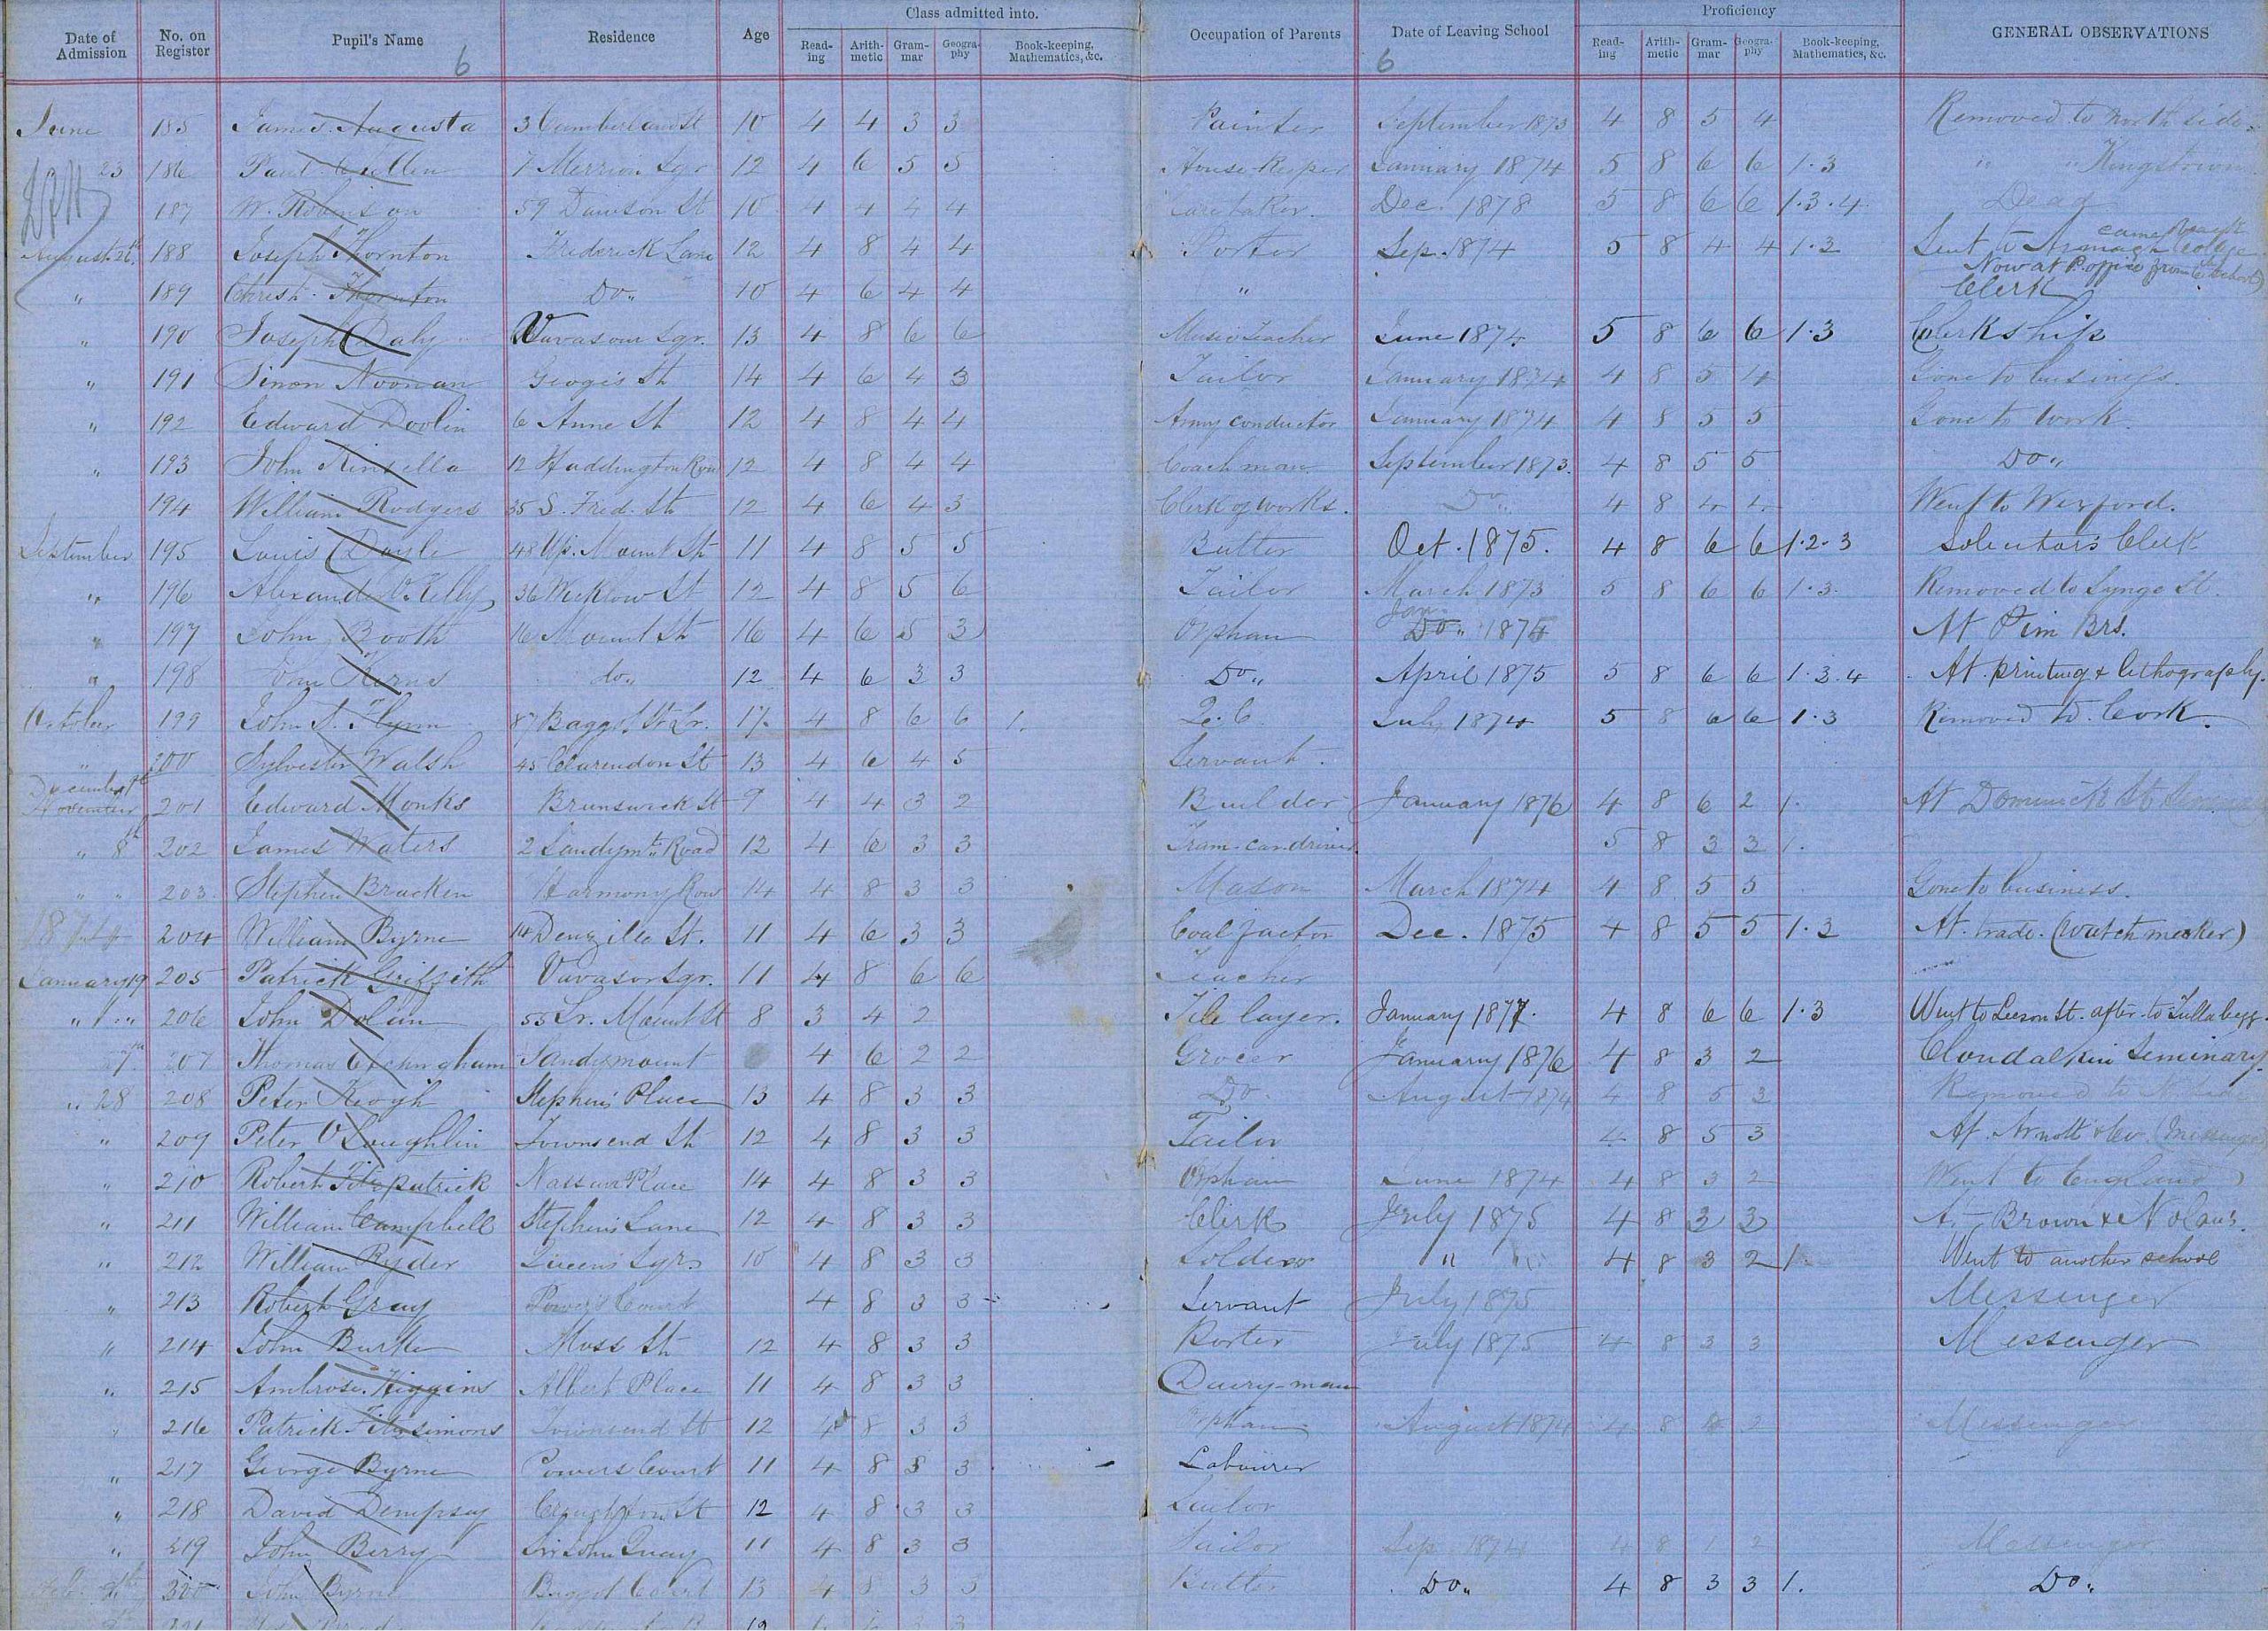 Class admitted into. Proficiency
Date of Admission No. on Register Pupil's Name Residence Age Read-ing Arith-metic Gram-mar Geogra-phy Book-keeping, Mathematics, &c. Occupation of Parents Date of Leaving School Read-ing Arith-metic Gram-mar Geogra-phy Book-keeping, Mathematics, &c. GENERAL OBSERVATIONS
6 6
June 185 James Augusta 3 Cumberland St 10 4 4 3 3 Painter September 1873 4 8 5 4 Removed to North side
" 23 186 Paul Cullen 7 Merrion Sqr 12 4 6 5 5 House-Keeper January 1874 5 8 6 6 1.3 " " Kingstown
187 W. Robinson 59 Dawson St 10 4 4 4 4 Caretaker. Dec. 1878 5 8 6 6 1.3.4. Dead
August 26th 188 Joseph Thornton Frederick Lane 12 4 8 4 4 Porter Sep. 1874 5 8 4 4 1.3 Sent to Armagh College came back
Now at P. office from
" 189 Christ. Thornton Do,, 10 4 6 4 4 " Clerk
" 190 Joseph Daly Vavasour Sqr. 13 4 8 6 6 Music Teacher June 1874 5 8 6 6 1.3 Clerkship
" 191 Simon Noonan Geogis St 14 4 6 4 3 Tailor January 1874 4 8 5 4 Gone to business.
" 192 Edward Doolin 6 Anne St 12 4 8 4 4 Army conductor January 1874 4 8 5 5 Gone to work.
" 193 John Kinsella 12 Haddington Row 12 4 8 4 4 Coachman September 1873. 4 8 5 5 Do,,
194 William Rodgers 35 S. Fred. St 12 4 6 4 3 Clerk of works. Do,, 4 8 4 4 Went to Wexford.
September 195 Louis Doyle 48 Up. Mount St 11 4 8 5 5 Butler Oct. 1875. 4 8 6 6 1.2.3 Solicitor's Clerk
" 196 Alexander O'Kelly 36 Wicklow St 12 4 8 5 6 Tailor March 1873 5 8 6 6 1.3. Removed to Synge St.
" 197 John Booth 16 Mount St 16 4 6 5 3 Orphan Jan. Do,, 1874 At Pim Brs.
" 198 John Kerns do,, 12 4 6 3 3 Do,, April 1875 5 8 6 6 1.3.4 At printing & lithography.
October 199 John S. Flynn 87 Baggot St Lr. 17 4 8 6 6 1. Q.C. July 1874 5 8 6 6 1.3 Removed to Cork.
" 200 Sylvester Walsh 45 Clarendon St 13 4 6 4 5 Servant.
December 1st
November 201 Edward Monks Brunswick St 9 4 4 3 2 Builder January 1876 4 8 6 2 1. At Dominick St
" 8th 202 James Waters 2 Sandymt. Road 12 4 6 3 3 Tram-car-driver 5 8 3 3 1.
" " 203. Stephen Bracken Harmony Row 14 4 8 3 3 Mason March 1874 4 8 5 5 Gone to business.
1874 204 William Byrne 14 Denzille St. 11 4 6 3 3 Coal factor Dec. 1875 4 8 5 5 1.3 At trade. (watch maker)
January 19 205 Patrick Griffith Vavasor Sqr. 11 4 8 6 6 Teacher
" " 206 John Dolan 55 Lr. Mount St 8 3 4 2 Tile layer. January 1877. 4 8 6 6 1.3 Went to Leeson St. after to Tullabegg.
207 Thomas Sandymount 4 6 2 2 Grocer January 1876 4 8 3 2 Clondalkin Seminary.
" 28 208 Peter Keogh Stephen's Place 13 4 8 3 3 Do. August 1874 4 8 5 3 Removed to
" 209 Peter O'Loughlin Townsend St 12 4 8 3 3 Tailor 4 8 5 3 At Arnott & Co (Messenger
" 210 Robert Fitzpatrick Nassau Place 14 4 8 3 3 Orphan June 1874 4 8 3 2 Went to England
" 211 William Campbell Stephen's Lane 12 4 8 3 3 Clerk July 1875 4 8 3 3 At Brown & Nolans.
" 212 William Ryder Queen's Sqr. 10 4 8 3 3 Soldier " " 4 8 3 2 1. Went to another school
" 213 Robert Gray Power's Court 4 8 3 3 Servant July 1875 Messenger
" 214 John Burke Moss St 12 4 8 3 3 Porter July 1875 4 8 3 3 Messenger
" 215 Ambrose Higgins Albert Place 11 4 8 3 3 Dairy-man
" 216 Patrick Fitzsimons Townsend St 12 4 8 3 3 Orphan August 1874 4 8 4 2 Messenger
" 217 George Byrne Powers Court 11 4 8 3 3 Labourer
" 218 David Dempsey Creighton St 12 4 8 3 3 Sailor
" 219 John Berry Sir John Quay 11 4 8 3 3 Sailor Sep. 1874 4 8 1 2 Messenger
Feb. 320 John Byrne Baggot Court 13 4 8 3 3 Butler Do,, 4 8 3 3 1. Do,,